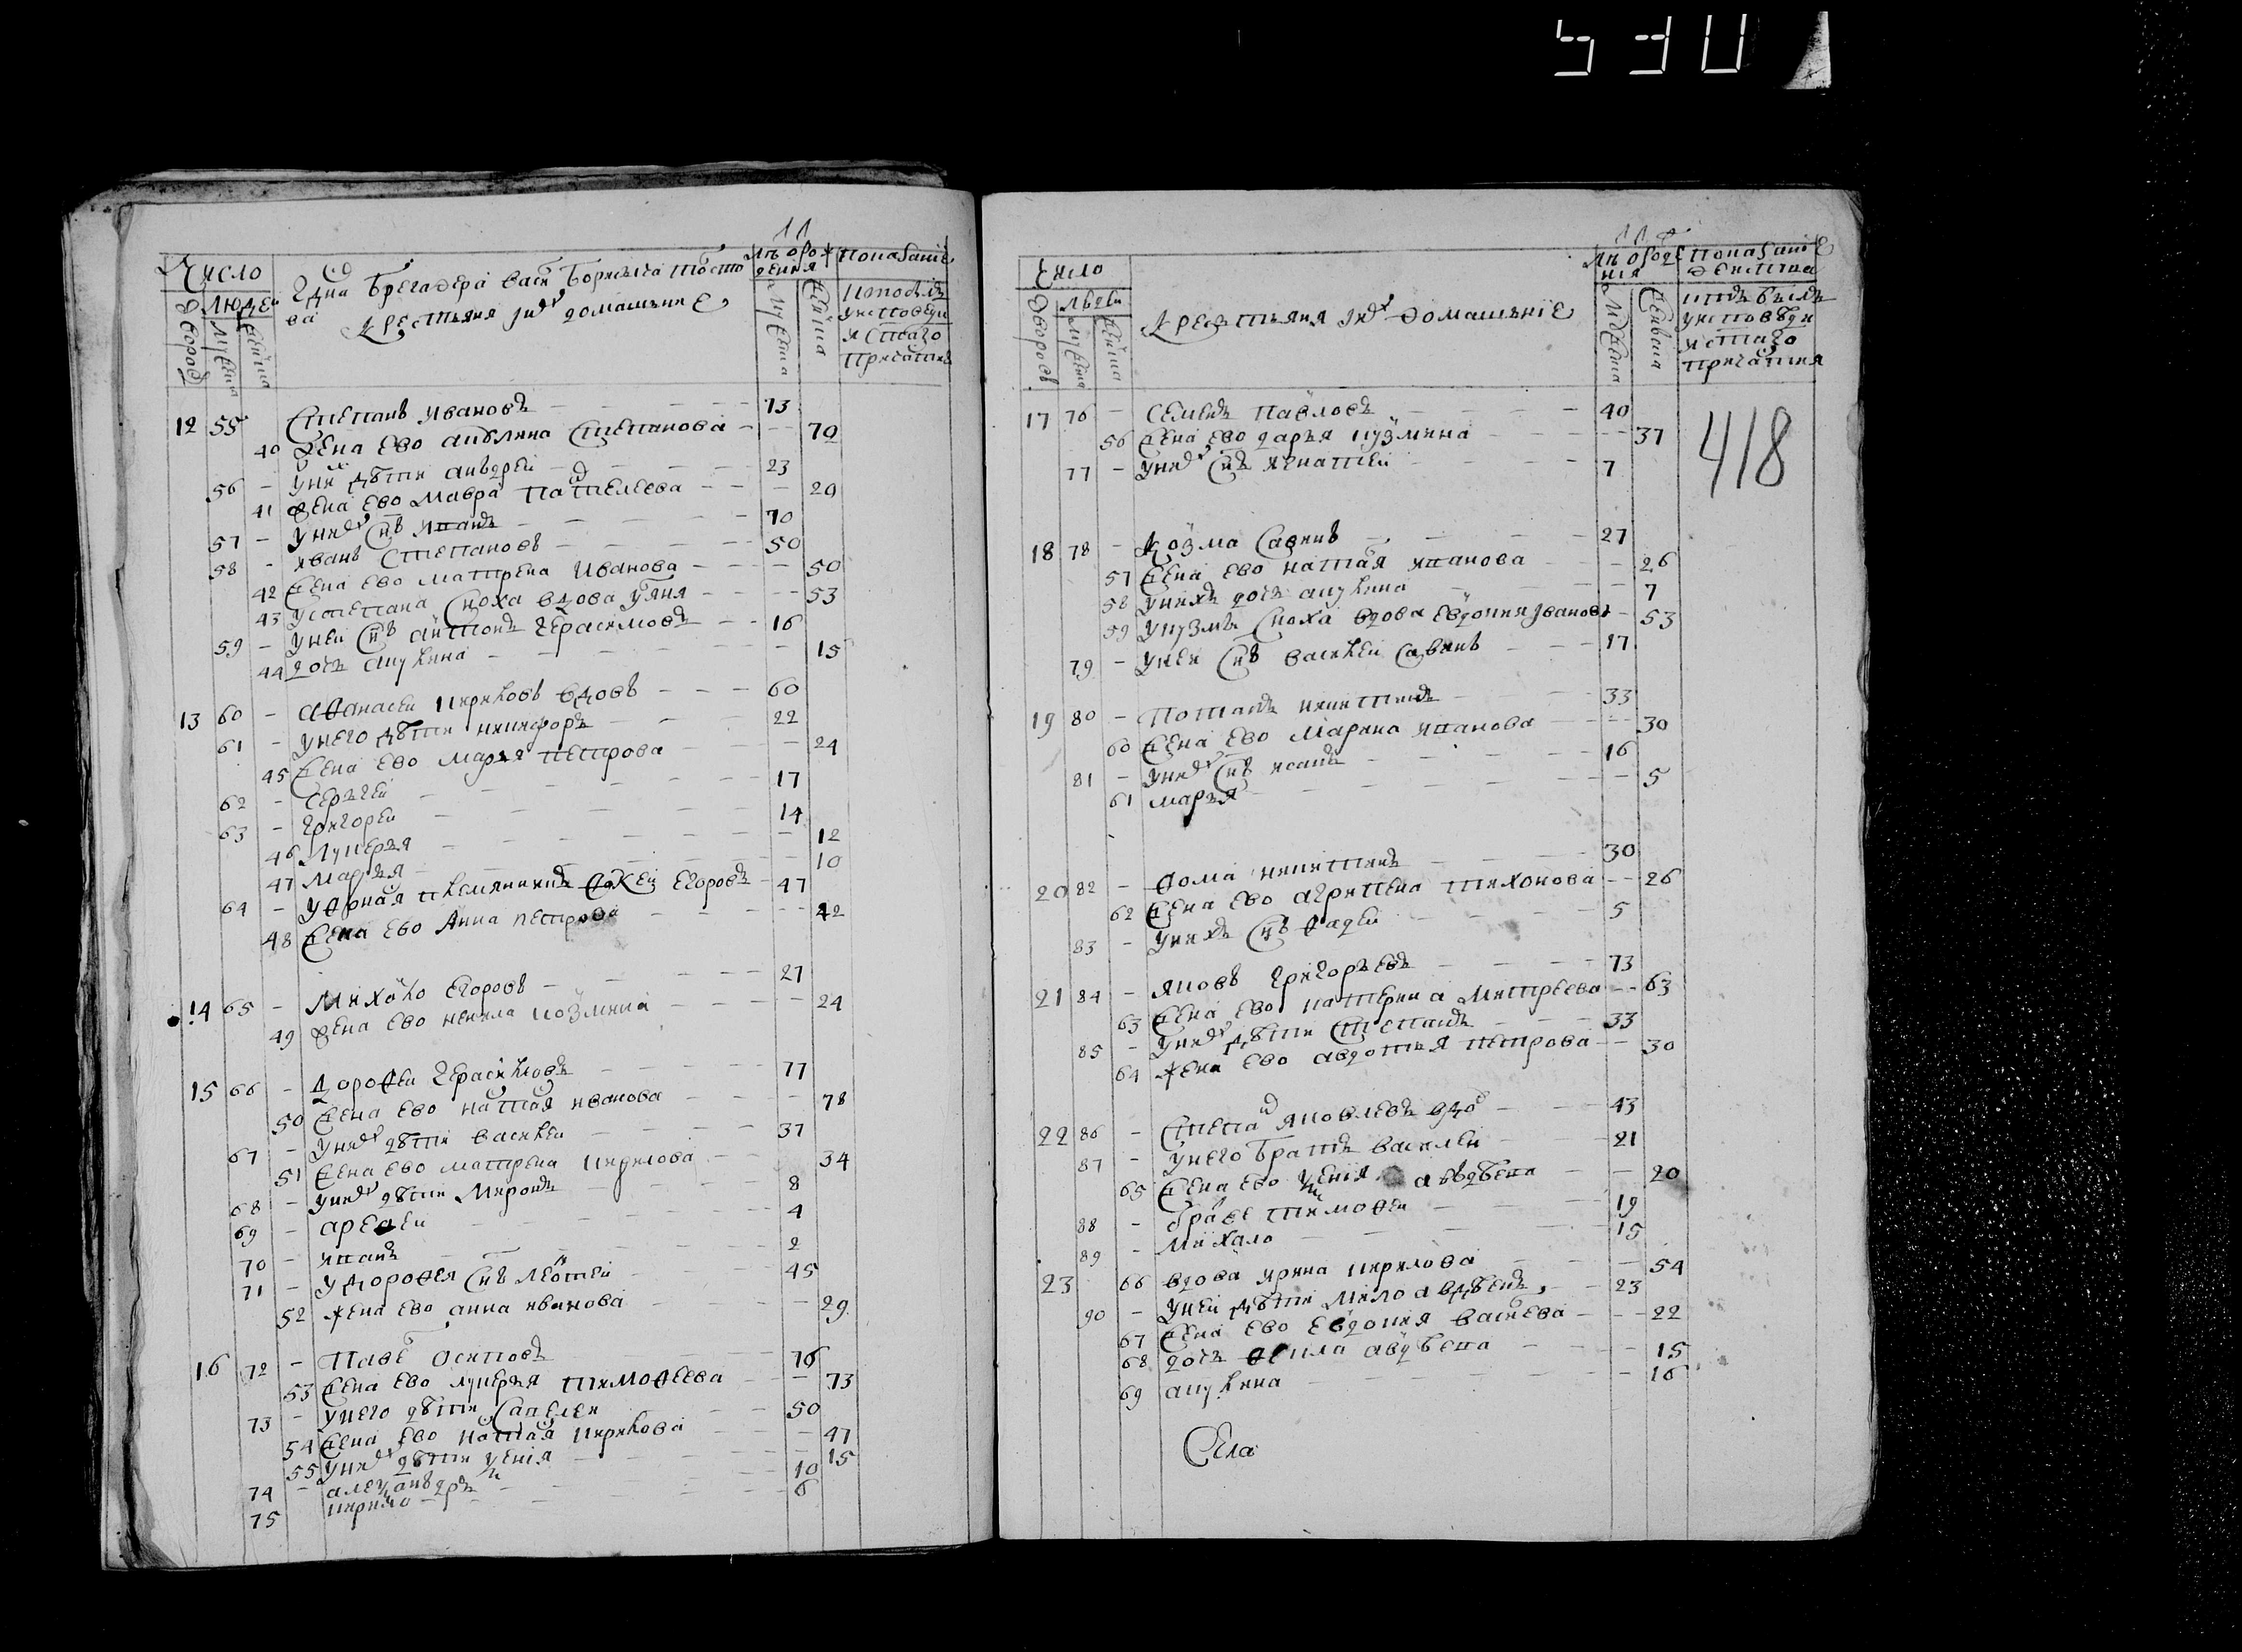 530
11
Число
Людей
г҃дна Брегадера Васи Борисыча Толсто
ва
крестьяня и их домашьние
лѣ о рож
дения
показание
исповеди
и с таго
причастия
Дворов
мужеска
женска
мужеска
женска
12 55 Степанъ Ивановъ 73
40 Жена ево Степанова 70
56 У них дѣти Андрей 23
41 Жена ево Мавра Пателеева 20
57 У них снъ
58 Иванъ Степановъ 50
42 Жена ево Матрена Иванова 50
43 У Степана сноха вдова 53
59 У ней снъ Антонъ Герасимовъ 16
44 дочь Акулина 15
13 60 Афанасеи Кириловъ вдовъ 60
61 У него дѣти Никифоръ 22
45 Жена ево Марья Петрова 24
62 Сергей 17
63 Григореи 14
46 Лукерья 12
47 Марья 10
64 племянникъ Егоровъ 47
48 Жена ево Анна Петрова 42
14 65 Михаило Егоровъ 27
49 Жена ево Ненила Козмина 24
15 66 Дорофеи Герасимовъ 77
50 Жена ево Настася Иванова 78
67 У них дѣти Василеи 37
51 Жена ево Матрена Кирилова 34
68 У них дѣти Миронъ 8
69 Арефеи 4
70 2
71 У Дорофея снъ 45
52 Жена ево Анна Иванова 29
16 72 Павел Осиповъ 76
53 Жена ево Лукерья Тимофеева 73
73 У него дѣти Савелеи 50
54 Жена ево Настася Кирилова 47
55 У них дѣти Ксения 15
74 Александръ 10
75 Кирило 6
11
Число
Дворовъ
Людеи
мужеска
женска
Крестьяня и их домашьние
лѣ о рожде
ния
мужеска
женская
показание
действа
кто былъ
у исповѣди
и с таго
причастия
418
17 76 Семенъ Павловъ 40
56 Жена ево Дарья Кузмина 37
77 У них снъ Игнатеи 7
18 78 Козма Савинъ 27
57 Жена ево Настася 26
58 У нихъ дочь Акулина 7
59 У Кузмы сноха вдова Евдокия Иванова 53
79 У неи снъ Василеи Савинъ 17
19 80 Потапъ Никитинъ 33
60 Жена ево Марина 30
81 У них снъ 16
61 Марья 5
20 82 Фома Никитинъ 30
62 Жена ево Агрипена Тихонова 26
83 У нихъ снъ Фадеи 5
21 84 Яковъ Григорьевъ 73
63 Жена ево Катерина Митреева 63
85 У них дѣти Степанъ 33
64 Жена ево Авдотья Петрова 30
22 86 Степан Яковлевъ вдов 43
87 У него братъ Василеи 21
65 Жена ево Ксения Авдѣева 20
88 Тимофеи 19
89 Михало 15
23 66 вдова Ирина Кирилова 54
90 У неи дѣти Мило Авдѣевъ 23
67 Жена ево Евдокия Васильева 22
68 дочь Фекла Авдѣева 15
69 Акулина 16
Села